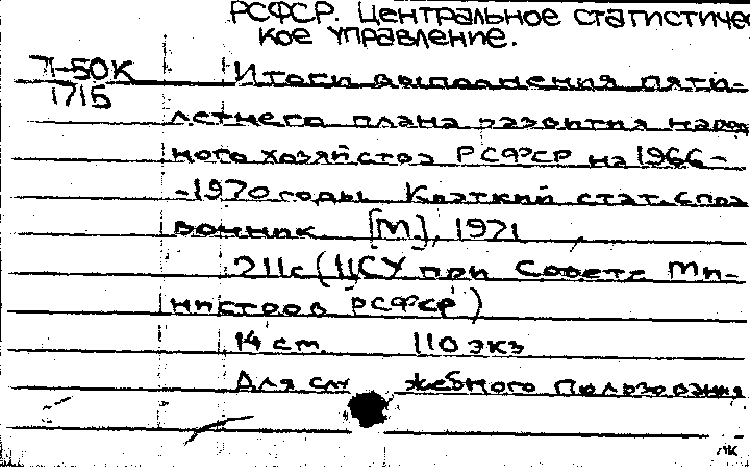 РСФСР. Центральное статистичес
кое управление.
71-50К Итоги выполнения пяти-
1715
летнего плана развития народ
ного хозяйства РСФСР на 1966-
-1970 годы. Краткий стат. спра
вочник. [М.], 1971
211с (ЦСУ при Совете Ми-
нистров РСФСР)
14 см. 110 экз
Для служебного пользования